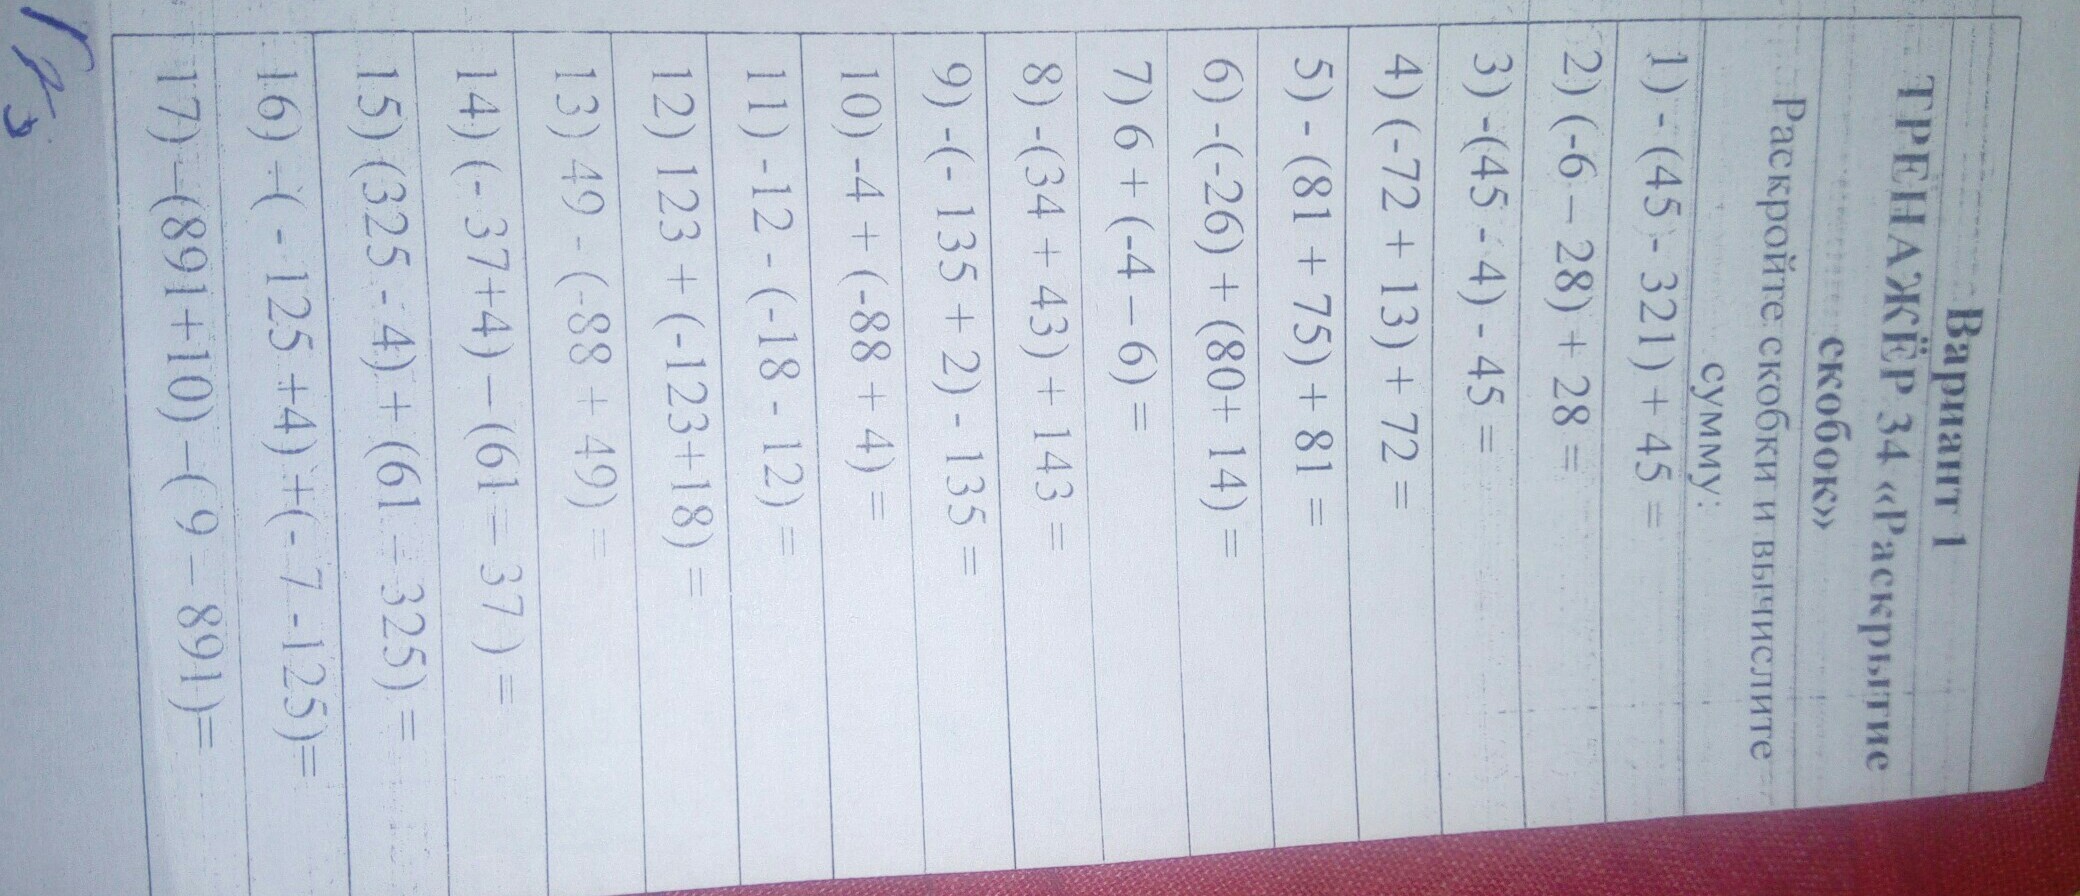 Вариант 1
ТРЕНАЖЁР 34 «Раскрытие
скобок»
Раскройте скобки и вычислите
сумму:
1) - (45 - 321) + 45 =
2) (-6 – 28) + 28 =
3) -(45 - 4) - 45 =
4) (-72 + 13) + 72 =
5) - (81 + 75) + 81 =
6) -(-26) + (80+ 14) =
7) 6 + (-4 – 6) =
8) -(34 + 43) + 143 =
9) -(- 135 + 2) - 135 =
10) -4 + (-88 + 4) =
11) -12 - (-18 - 12) =
12) 123 + (-123+18) =
13) 49 - (-88 + 49) =
14) (- 37+4) – (61 – 37 ) =
15) (325 - 4) + (61 – 325) =
16) –( - 125 +4) +(- 7 -125)=
17) –(891+10) –( 9 – 891)=